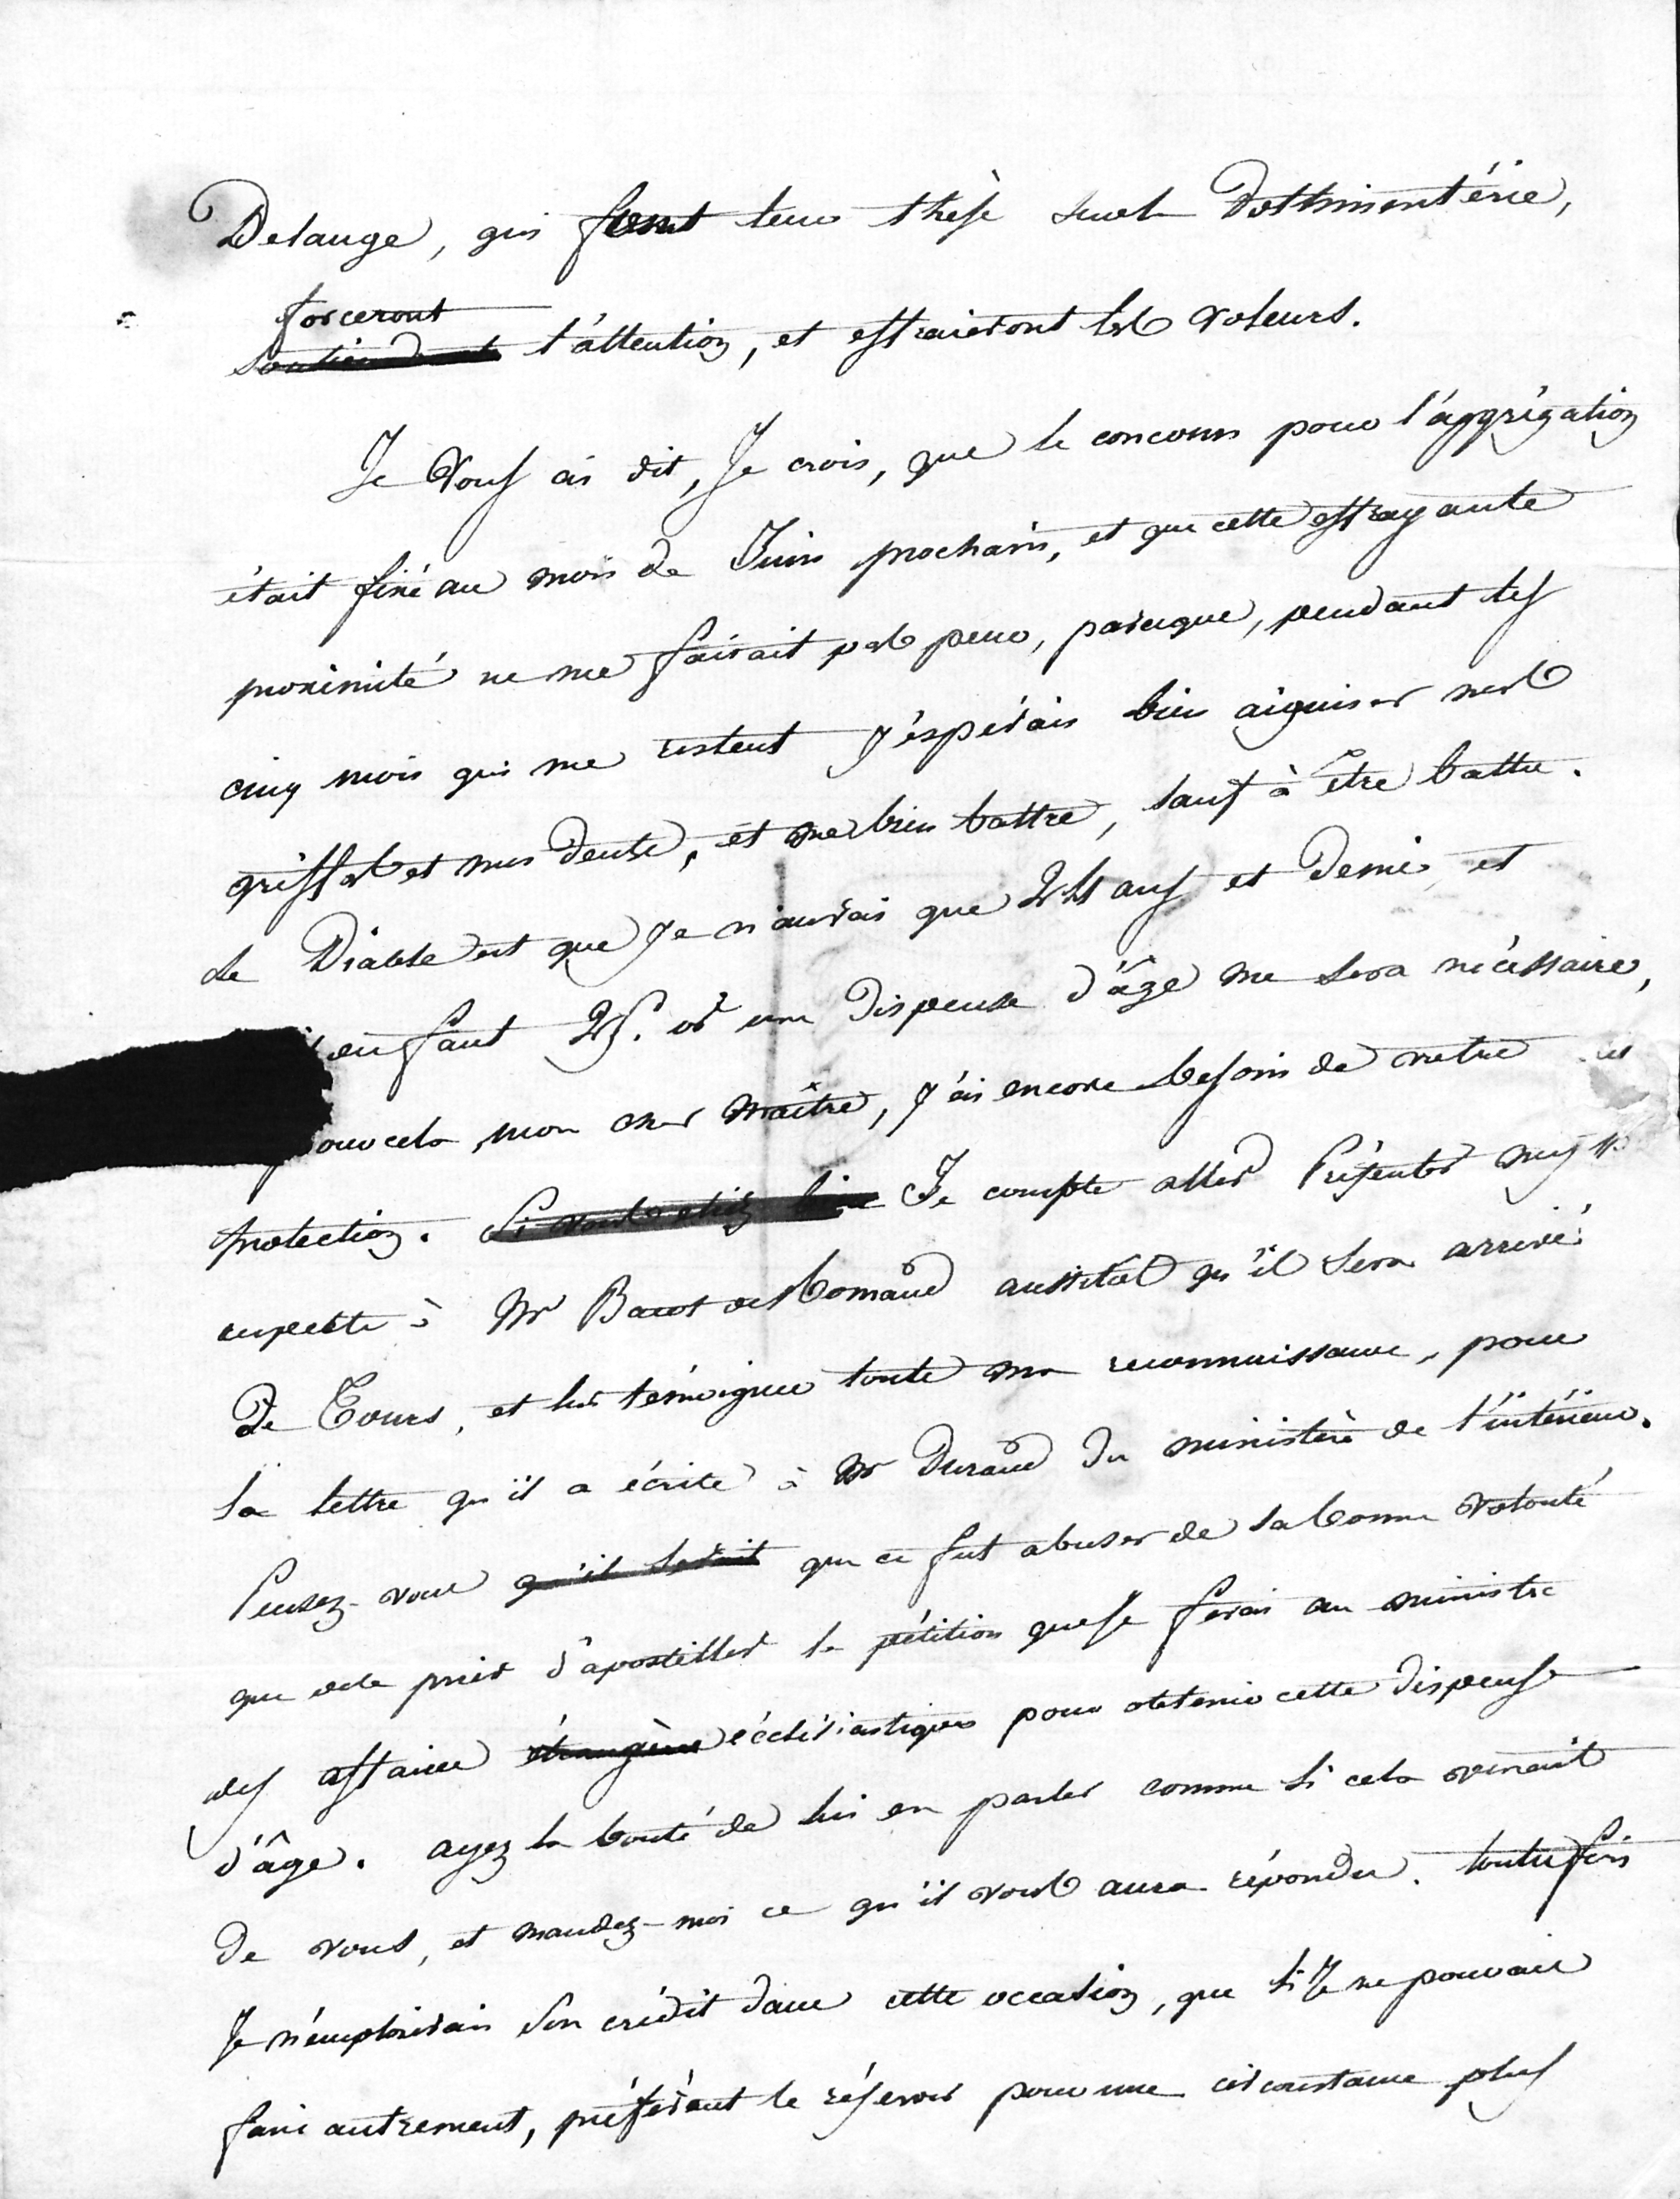 Delauge, qui font leur thèse sur la Dothinentérie,
forceront
l'attention, et effraieront les voleurs.
Je vous ai dit, Je crois, que le concours pour l'aggrégation
était fixé au mois de Juin prochain, et que cette effrayante
proximité ne me faisait pas peur, parceque, pendant les
cinq mois qui me restent j'espérais bien aiguiser mes
griffes et mes dents, et me bien battre, sauf à être battu.
Le Diable est que je n'aurai que 24 ans et demi, et
qu'il en faut 25. or une dispense d'âge me sera nécessaire,
et pour cela, mon cher maître, j'ai encore besoin de votre
protection. Si vous étiez bien Je compte aller présenter mes
respects à Mr Bacot de Romand aussitôt qu'il sera arrivé
De Tours, et lui témoigner toute ma reconnaissance, pour
la lettre qu'il a écrite à Mr Durand du ministère de l'intérieur.
Pensez-vous qu'il serait que ce fut abuser de sa bonne volonté
que de le prier d'apostiller la pétition que je ferai au ministre
des affaires étrangères écclésiastiques pour obtenir cette dispense
d'âge. ayez la bonté de lui en parler comme si cela venait
De vous, et mandez-moi ce qu'il vous aura répondu. toutefois
Je n'emploierais son crédit dans cette occasion, que si Je ne pouvais
faire autrement, préférant le réserver pour une circonstance plus